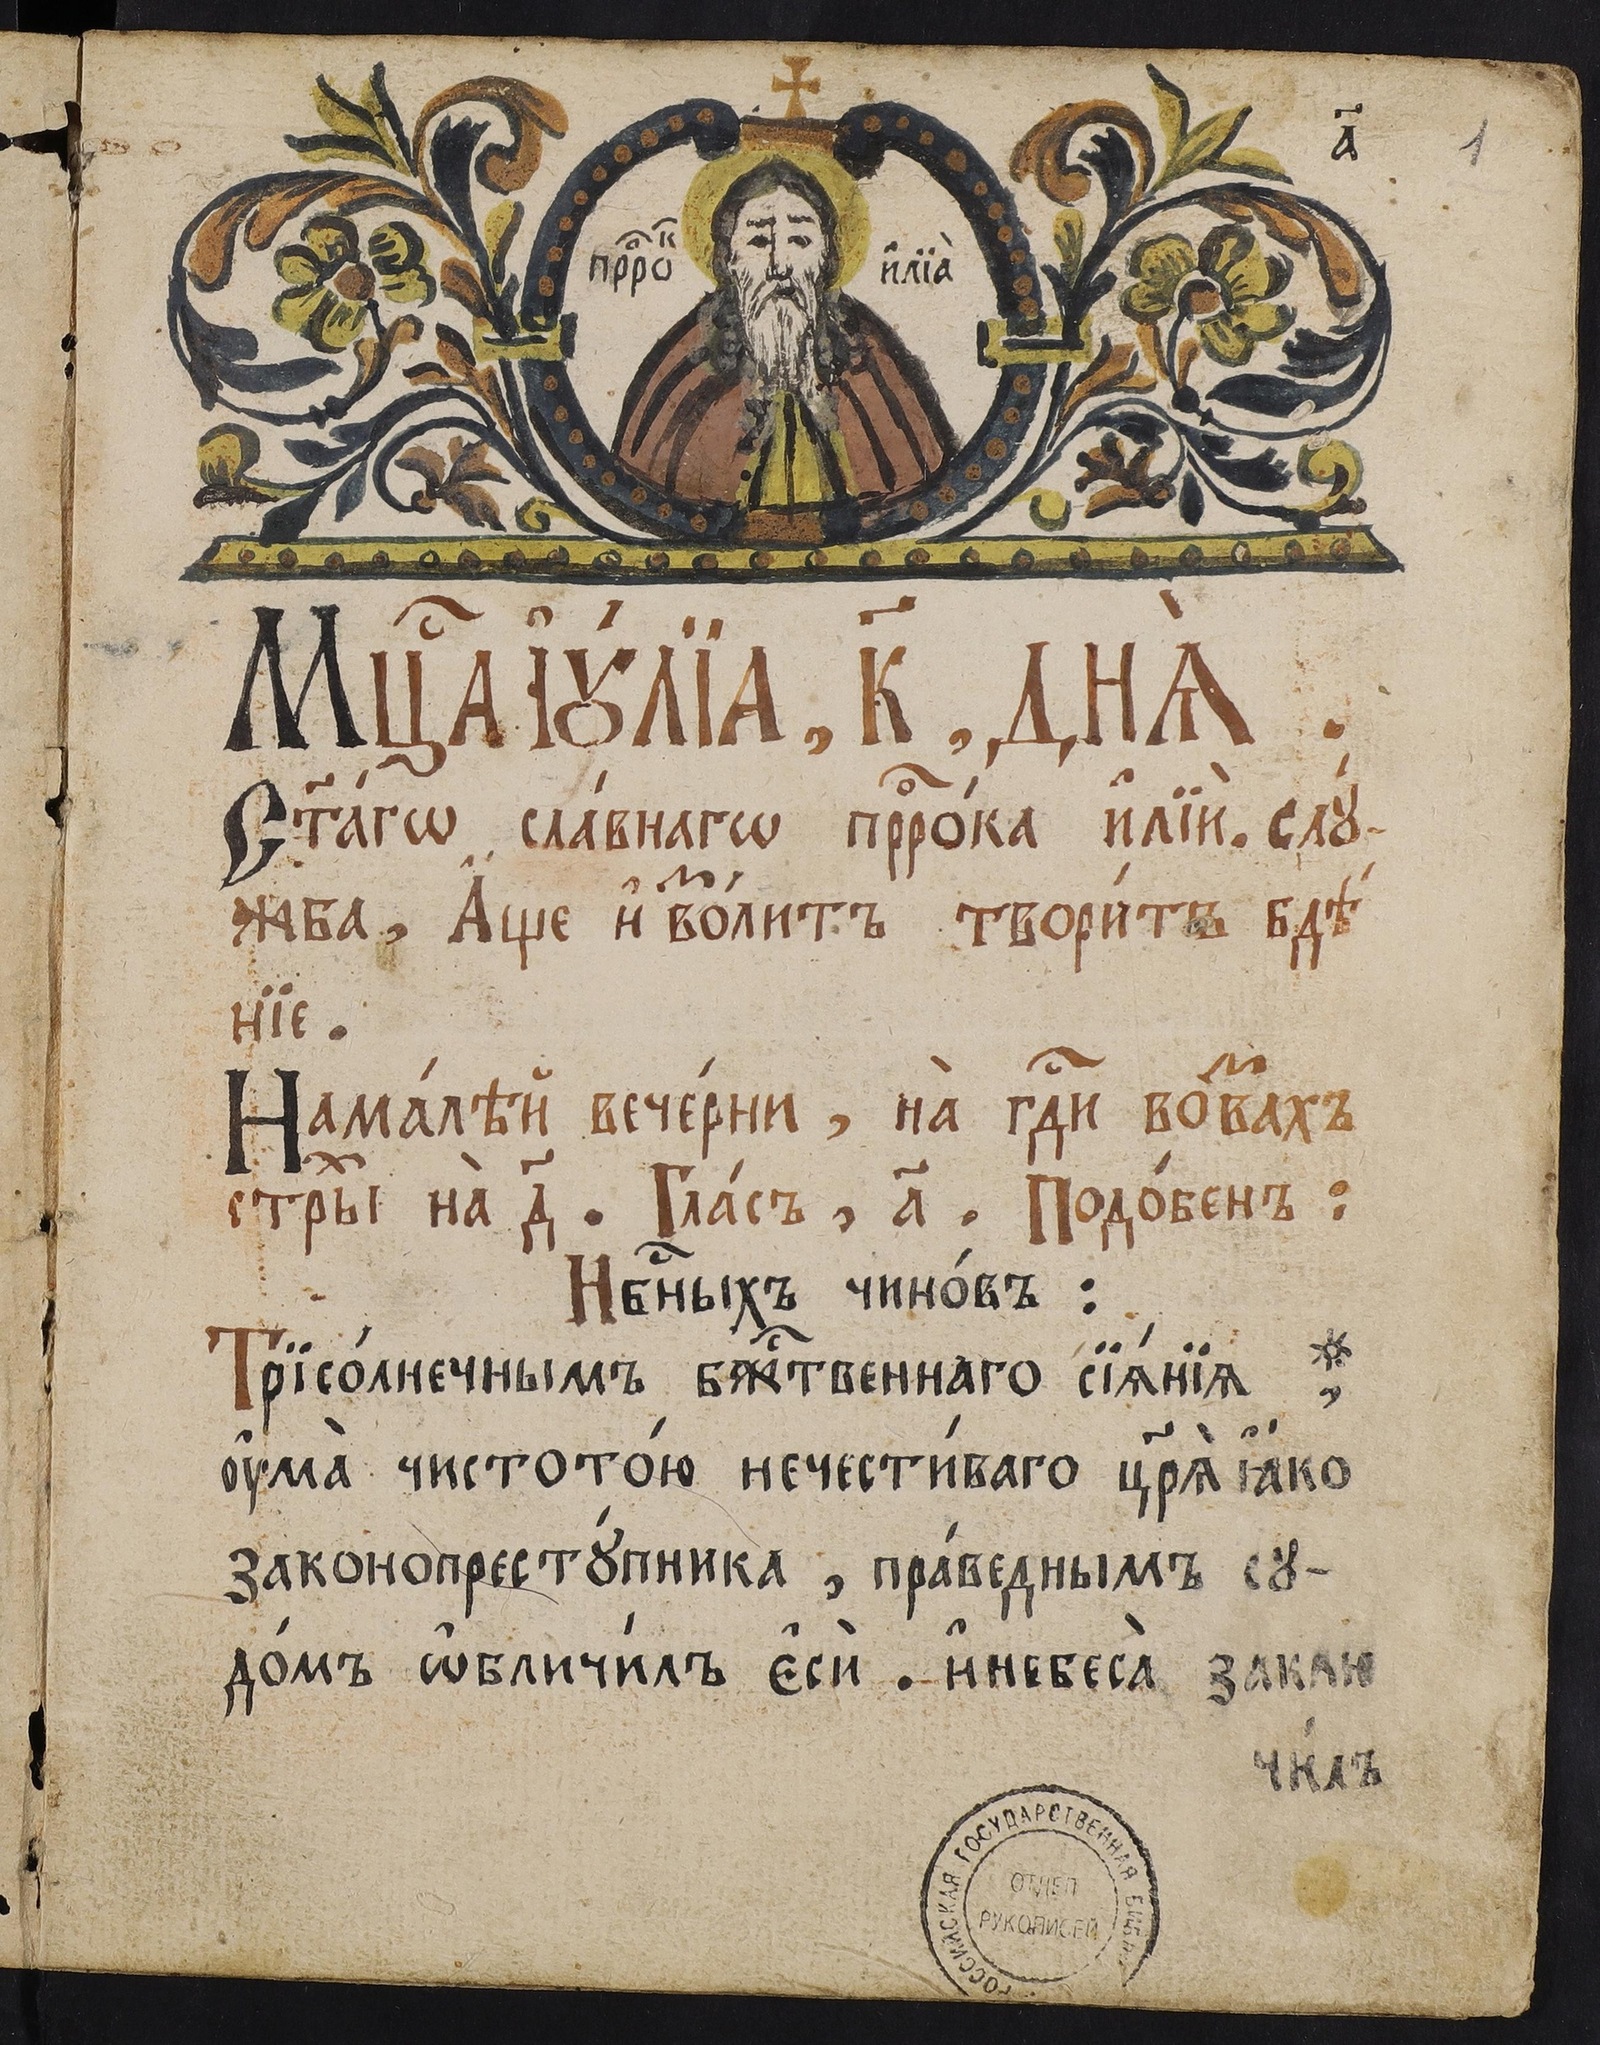 а҃ 1
прⷪ҇рокъ и҆лїа̀
Мцⷭ҇а і҆ꙋ́лїа, к҃, днѧ̀.
Ст҃а́гѡ сла́внагѡ прⷪ҇ро́ка и҆лїѝ. слꙋ́-
жба, А҆́ще и҆зво́литъ твори́тъ бдѣ́
нїе.
На ма́лѣй вече́рни, на̀ гдⷭ҇и возва́хъ
стр҃ы на̀ д҃. Гла́съ, а҃. Подо́бенъ:
Нбⷭ҇ныхъ чино́въ:
Трїсо́лнечнымъ бжⷭ҇твеннаго сїѧ́нїѧ *,
оу҆ма̀ чистото́ю нечести́ваго цр҃ѧ̀ ꙗ҆́ко
законопрестꙋ́пника, пра́веднымъ сꙋ-
до́мъ ѡ҆бличи́лъ є҆сѝ. и҆ небеса̀ заклю
чи́лъ
РОССИЙСКАЯ ГОСУДАРСТВЕННАЯ
ОТДЕЛ
РУКОПИСЕЙ